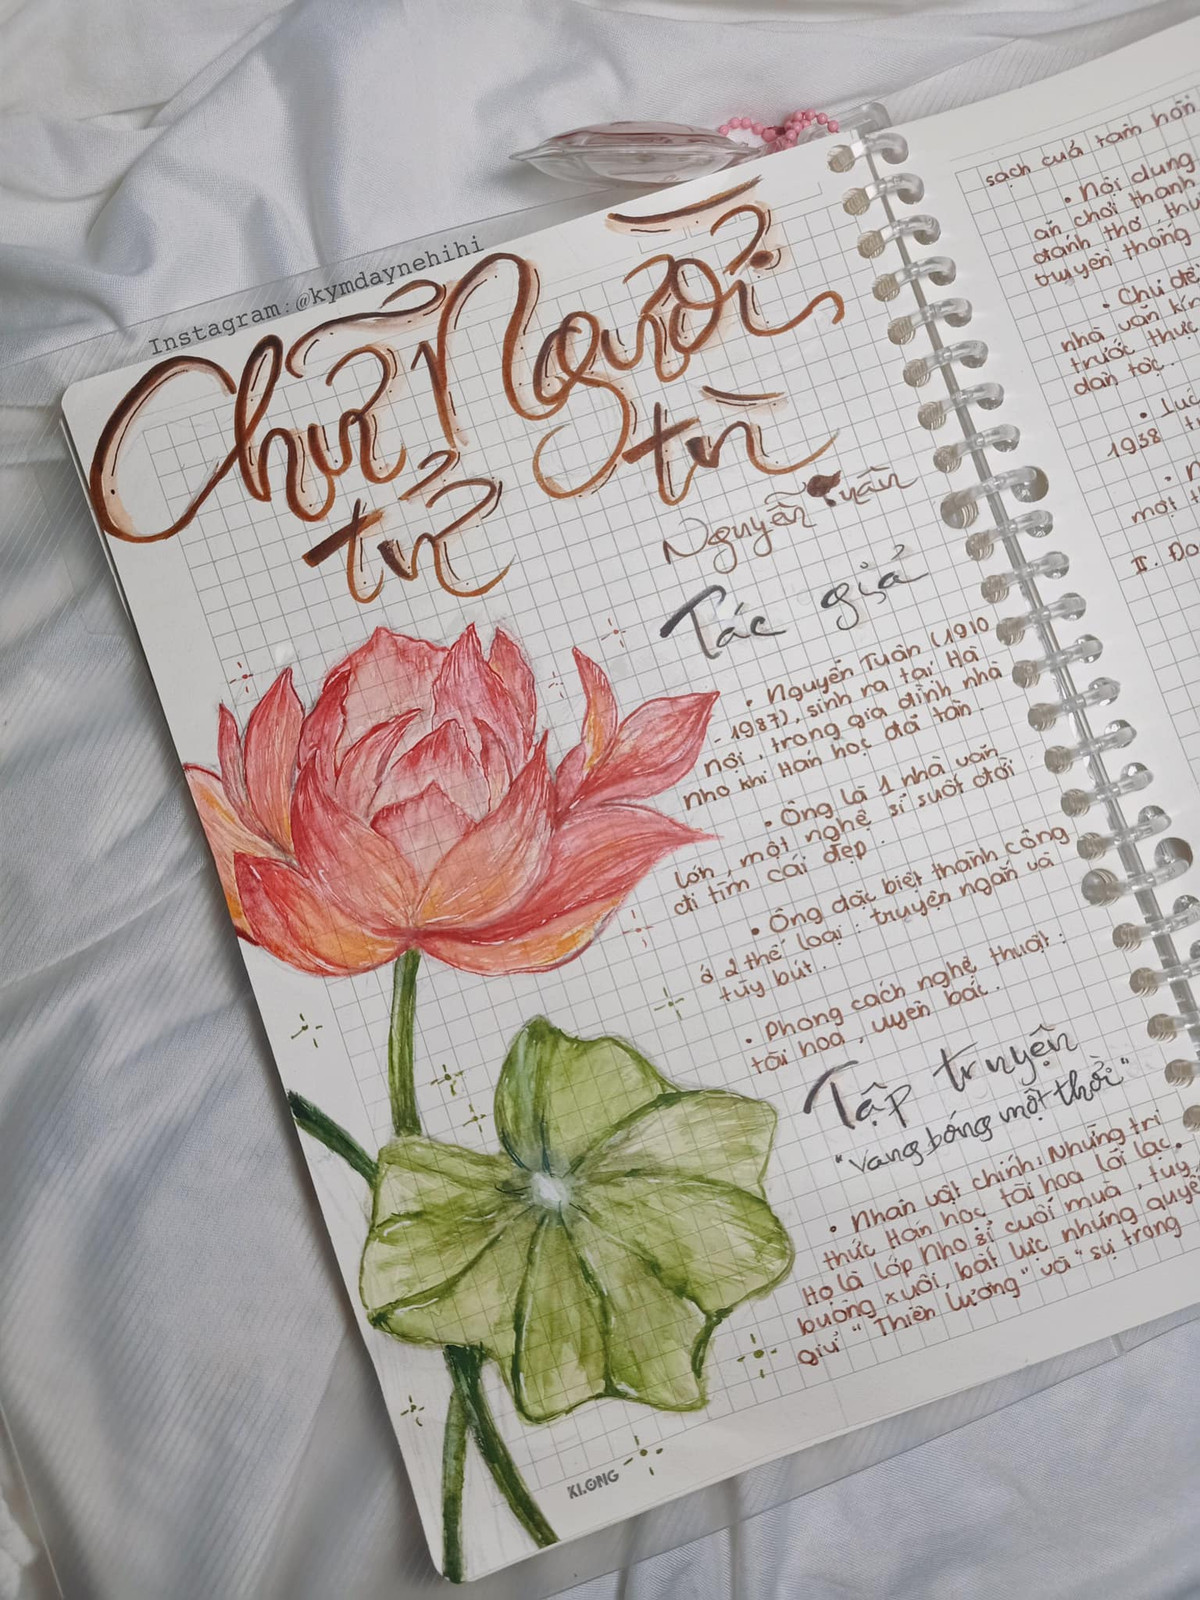 Instagram:@kymdaynehihi
Chữ Người
tử tù
Nguyễn Tuân
Tác giả
• Nguyễn Tuân (1910
- 1987), sinh ra tại Hà
Nội, trong gia đình nhà
Nho khi Hán học đã tàn.
• Ông là 1 nhà văn
lớn, một nghệ sĩ suốt đời
đi tìm cái đẹp.
• Ông đặc biệt thành công
ở 2 thể loại: truyện ngắn và
tùy bút.
• Phong cách nghệ thuật:
tài hoa, uyên bác.
Tập truyện
"Vang bóng một thời"
• Nhân vật chính: Những tri
thức Hán học tài hoa lỗi lạc.
Họ là lớp Nho sĩ cuối mùa, tuy
buông xuôi, bất lực nhưng quyết
giữ "Thiên lương" và "sự trong
KLONG
sạch của tâm hồn
• Nội dung
ăn chơi thanh
đánh thơ, thư
truyền thống
• Chủ đề
nhà văn kín
trước thực
dân tộc.
• Lúc
1938
một
II. Đo